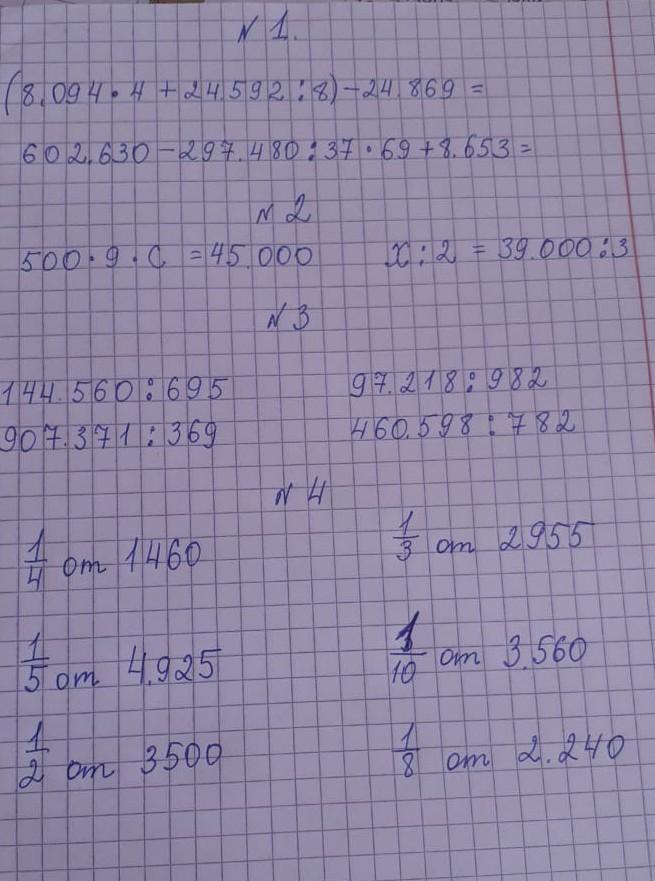 N 1.
(8.094 · 4 + 24.592 : 8) - 24.869 =
602.630 - 297.480 : 37 · 69 + 8.653 =
N 2
500 · 9 · C = 45.000 x : 2 = 39.000 : 3
N 3
144.560 : 695 97.218 : 982
907.371 : 369 460.598 : 782
N 4
1/4 от 1460 1/3 от 2955
1/5 от 4.925 1/10 от 3.560
1/2 от 3500 1/8 от 2.240